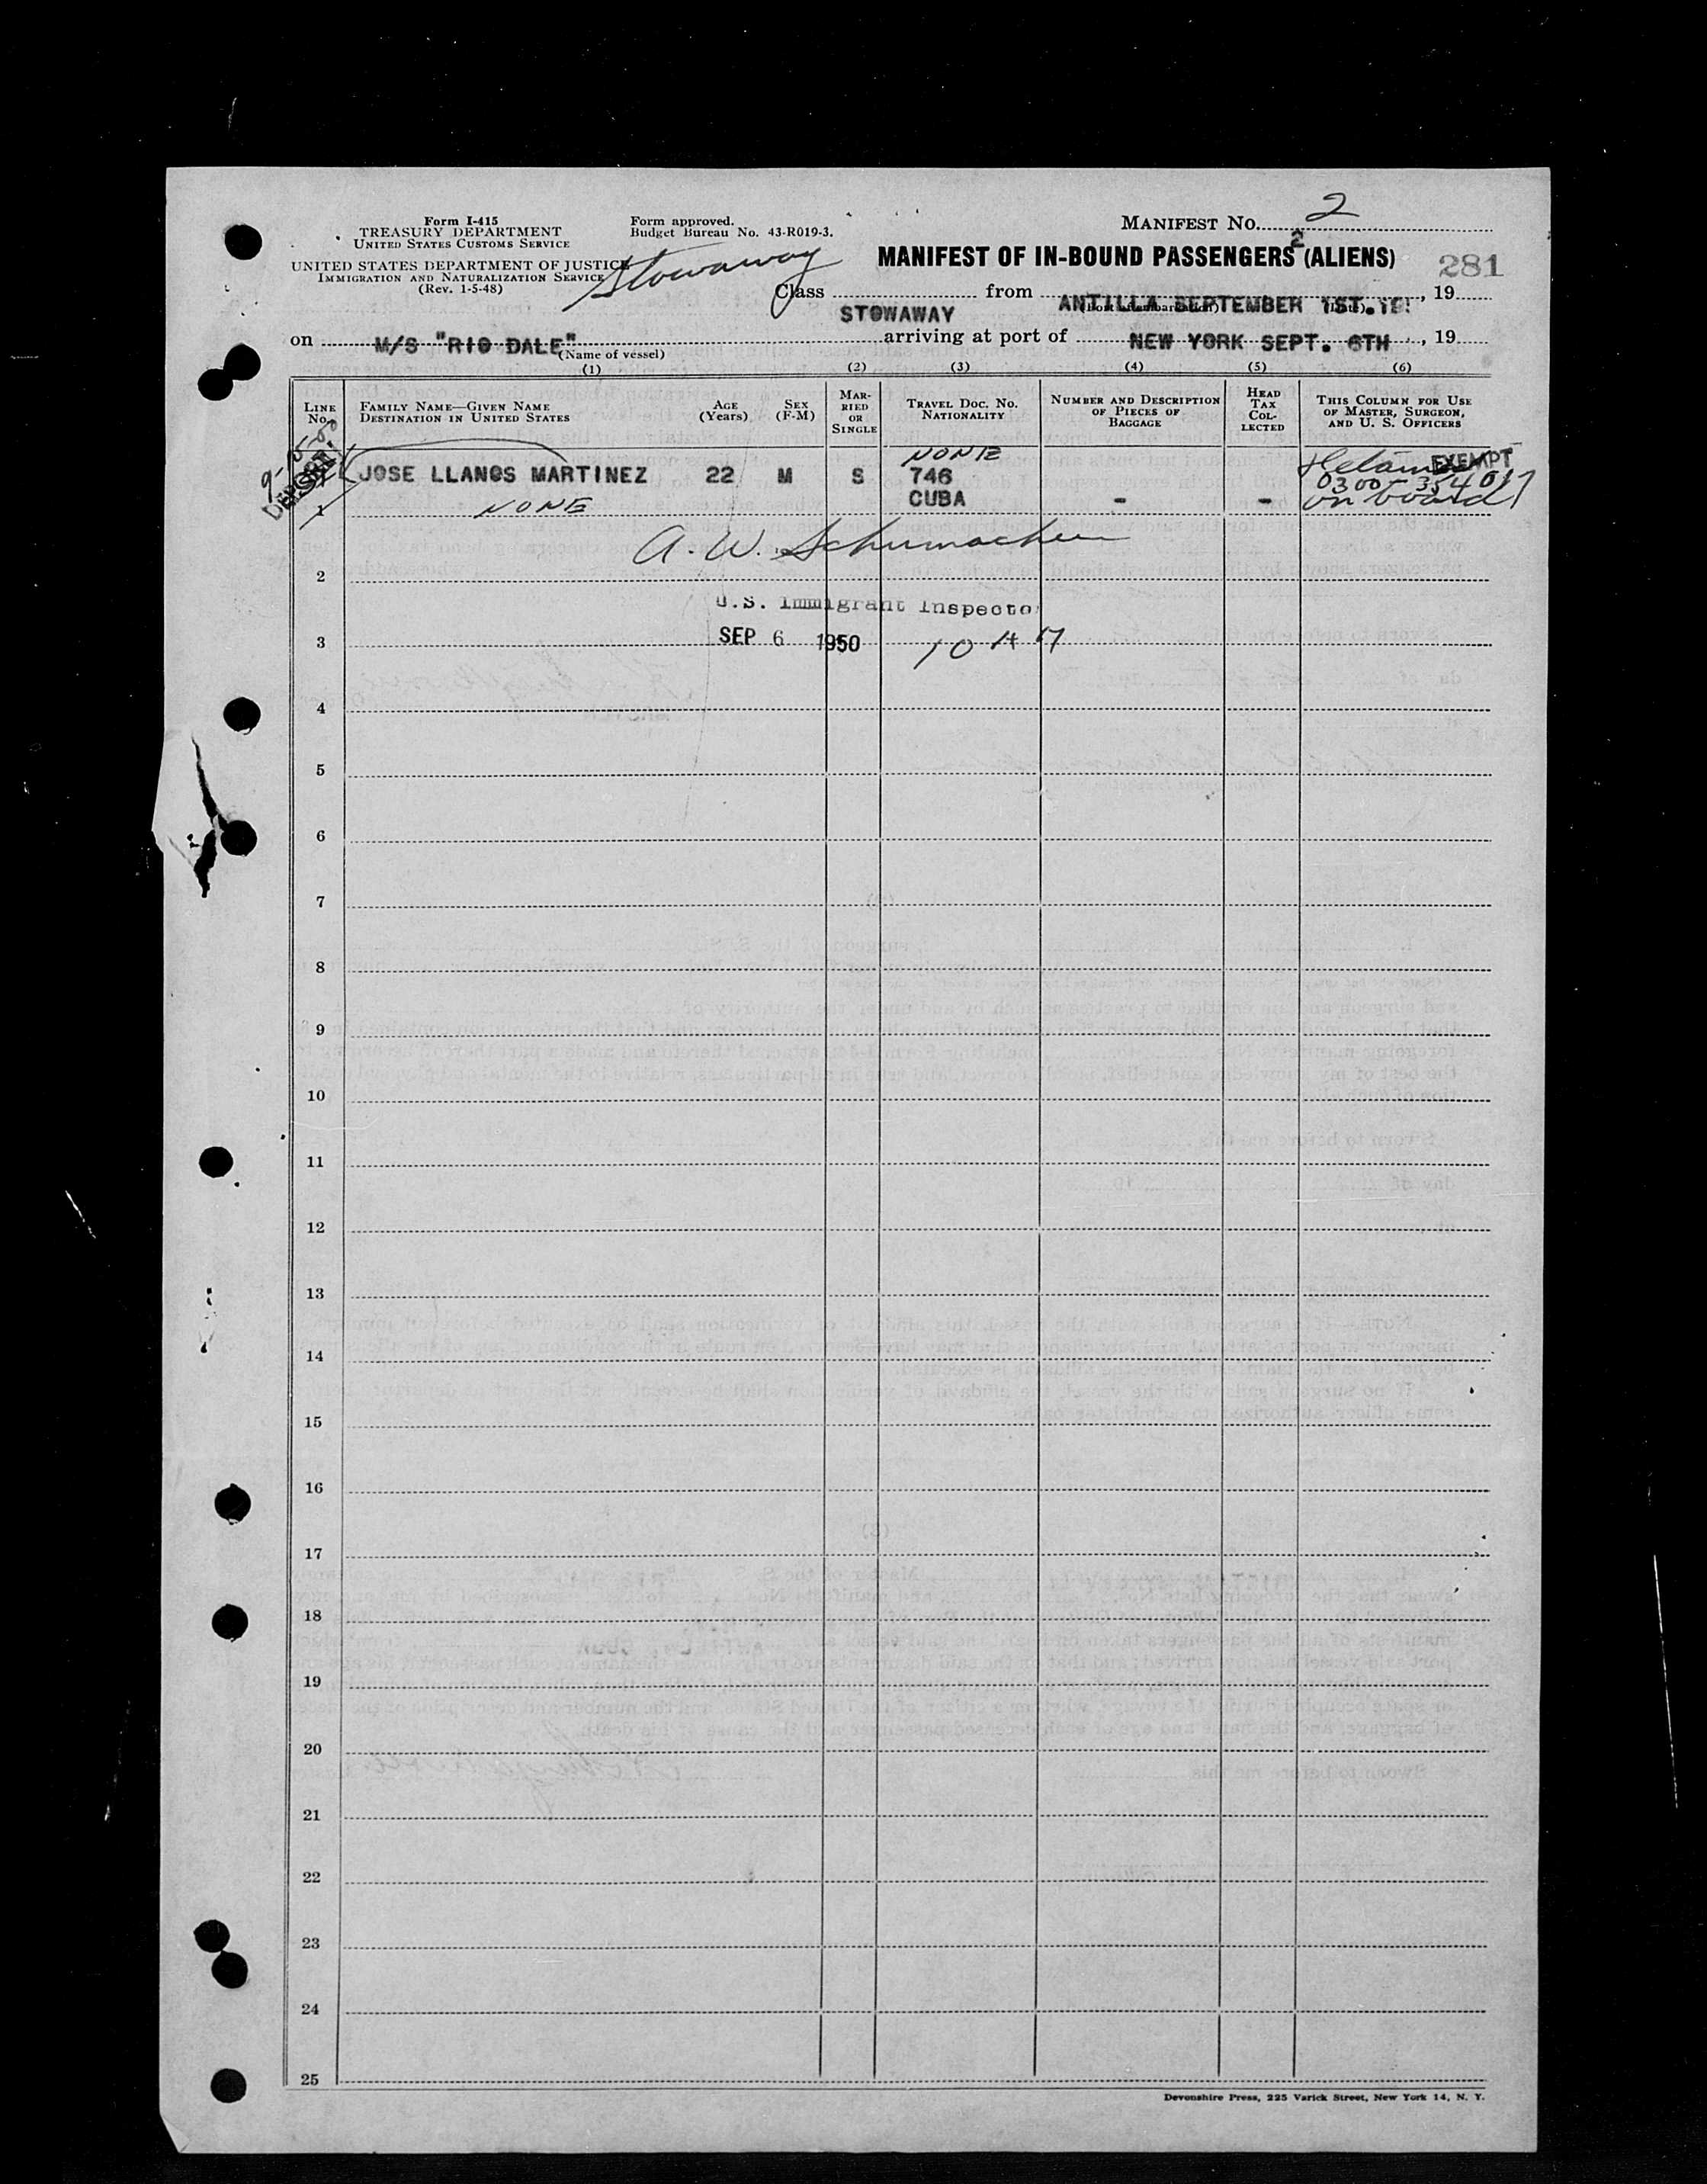 Form I-415
TREASURY DEPARTMENT
UNITED STATES CUSTOMS SERVICE
UNITED STATES DEPARTMENT OF JUSTICE
IMMIGRATION AND NATURALIZATION SERVICE
(Rev. 1-5-48)
Form approved.
Budget Bureau No. 43-R019-3.
MANIFEST No. 2
2
MANIFEST OF IN-BOUND PASSENGERS (ALIENS)
281
Stowaway
Class STOWAWAY from ANTILLA SEPTEMBER 1ST. , 19
on M/S "RIO DALE" arriving at port of NEW YORK SEPT. 6TH , 19
(Name of vessel)
(1) (2) (3) (4) (5) (6)
LINE No.
FAMILY NAME—GIVEN NAME
DESTINATION IN UNITED STATES
AGE (Years)
SEX (F-M)
MARRIED OR SINGLE
TRAVEL DOC. NO.
NATIONALITY
NUMBER AND DESCRIPTION OF PIECES OF BAGGAGE
HEAD TAX COLLECTED
THIS COLUMN FOR USE OF MASTER, SURGEON, AND U. S. OFFICERS
NONE
1 JOSE LLANOS MARTINEZ 22 M S 746 EXEMPT
NONE CUBA - - on board
A. W. Schumacher
2
U.S. Immigrant Inspector
3 SEP 6 1950
4
5
6
7
8
9
10
11
12
13
14
15
16
17
18
19
20
21
22
23
24
25
Devonshire Press, 225 Varick Street, New York 14, N. Y.